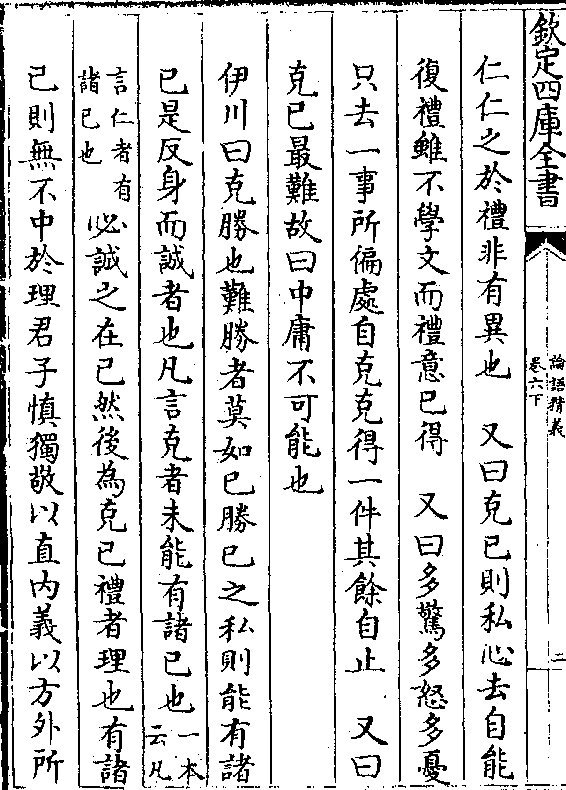 欽定四庫全書
論語精義
卷六下
二
仁仁之於禮非有異也　又曰克已則私心去自能
復禮雖不學文而禮意已得　又曰多驚多怒多憂
只去一事所偏處自克克得一件其餘自止　又曰
克已最難故曰中庸不可能也
伊川曰克勝也難勝者莫如已勝已之私則能有諸
已是反身而誠者也凡言克者未能有諸已也一本云凡
言仁者有諸已也必誠之在已然後為克已禮者理也有諸
已則無不中於理君子慎獨敬以直内義以方外所